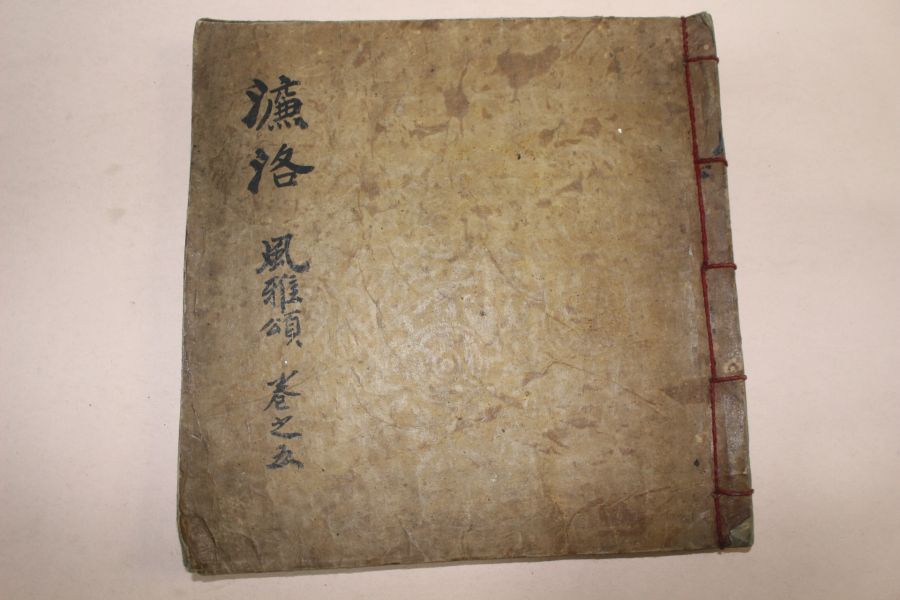 濂洛 風雅頌 卷之五